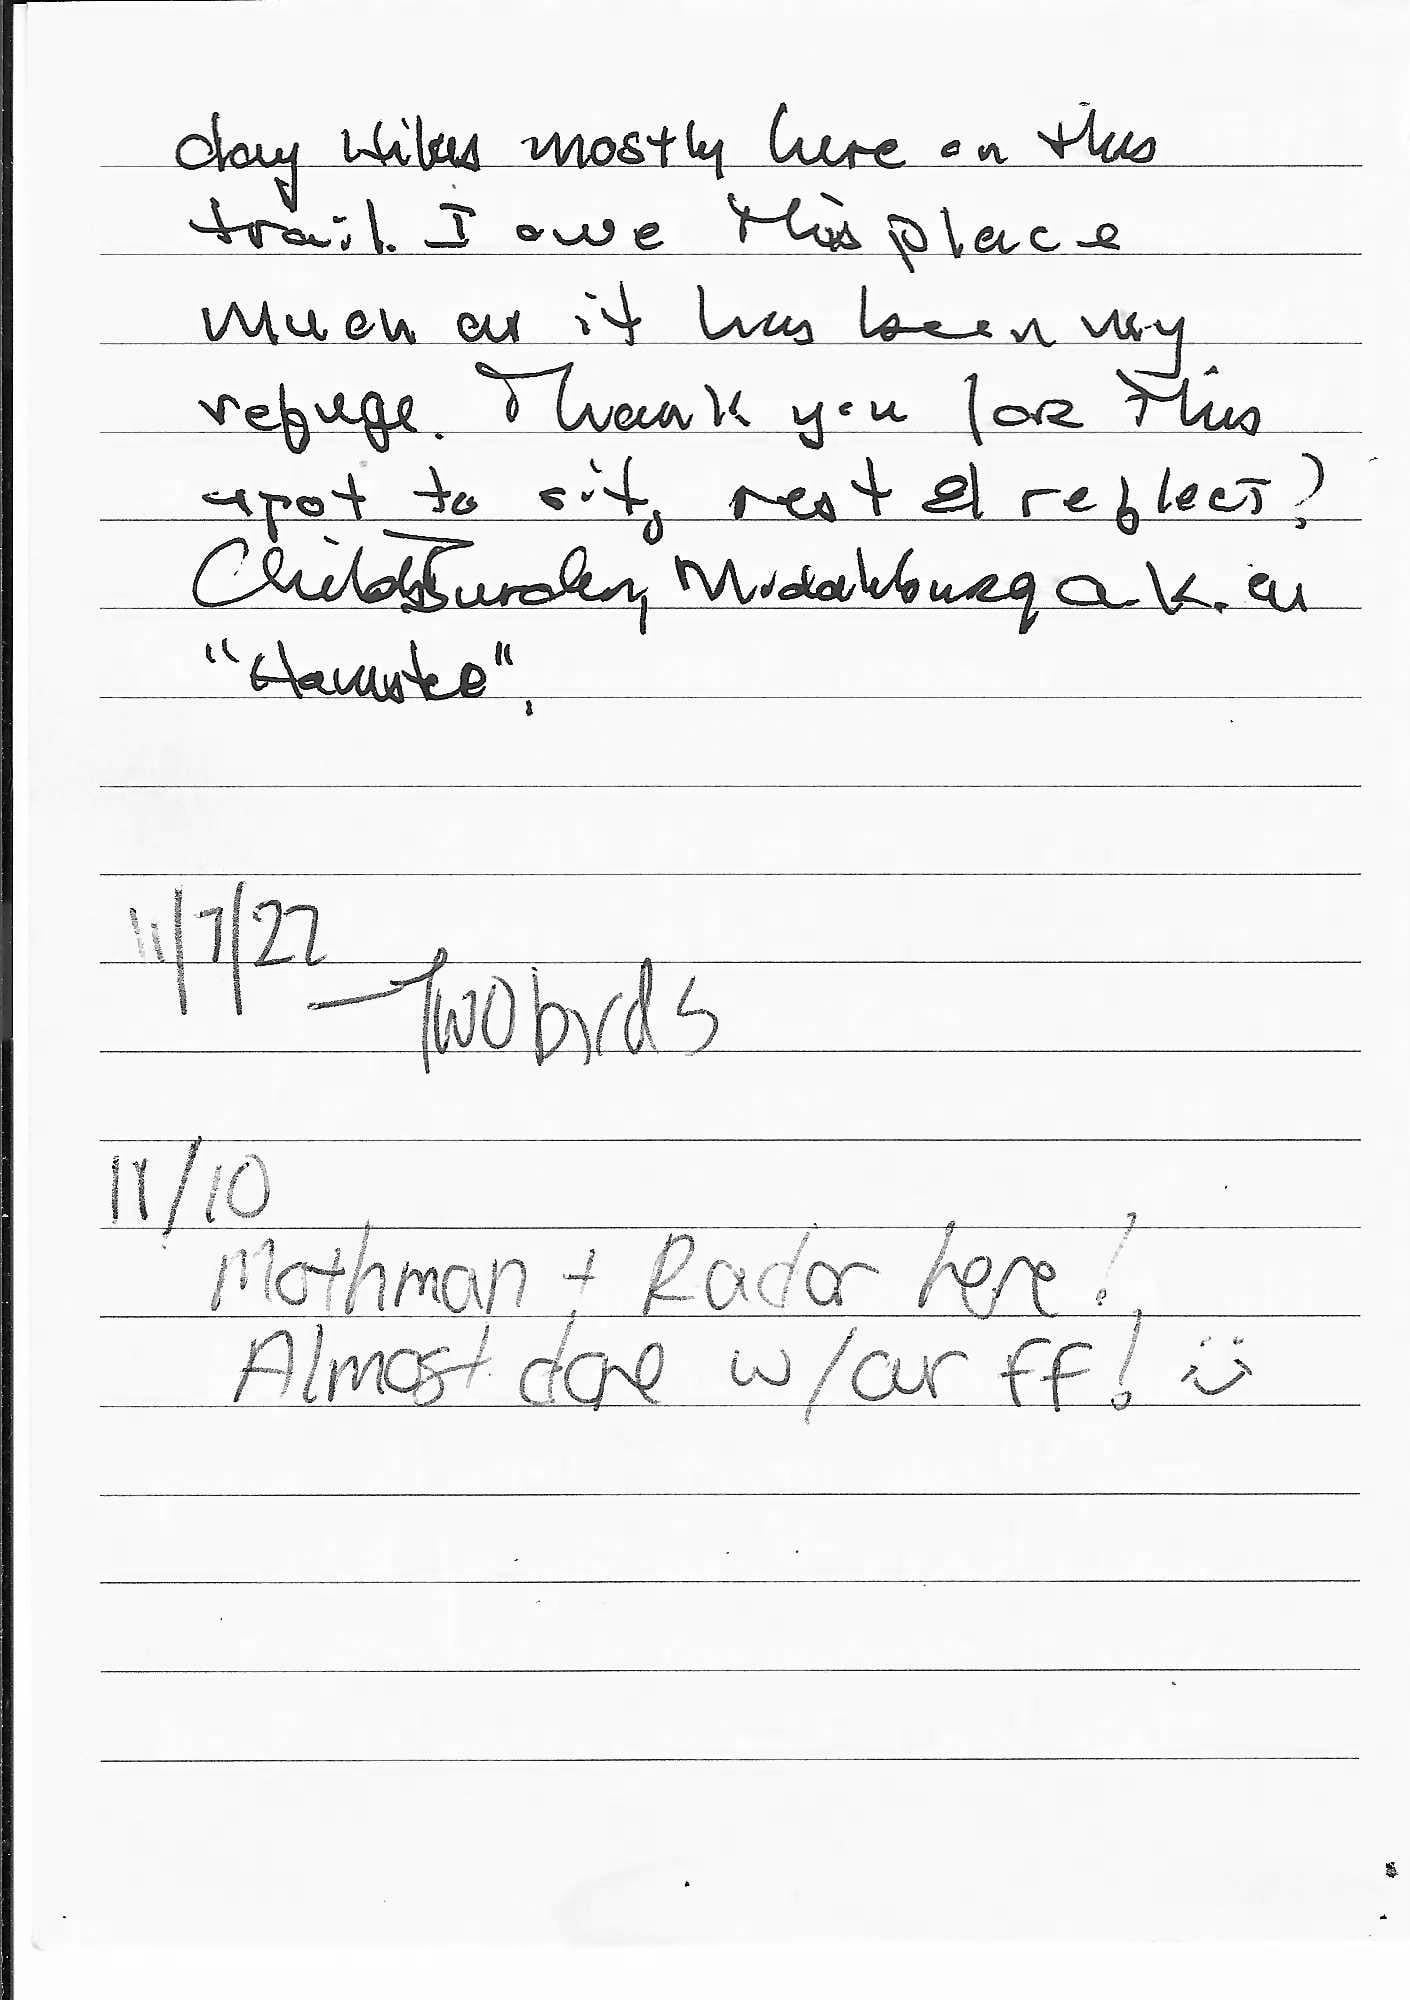 day hikes mostly here on this
trail. I owe this place
much as it has been my
refuge. Thank you for this
spot to sit, rest & reflect?
Childs Burden, Middleburg a.k.as
"Hamster".
11/7/22
- Two birds
11/10
Mothman + Radar here!
Almost done w/our FF! :)